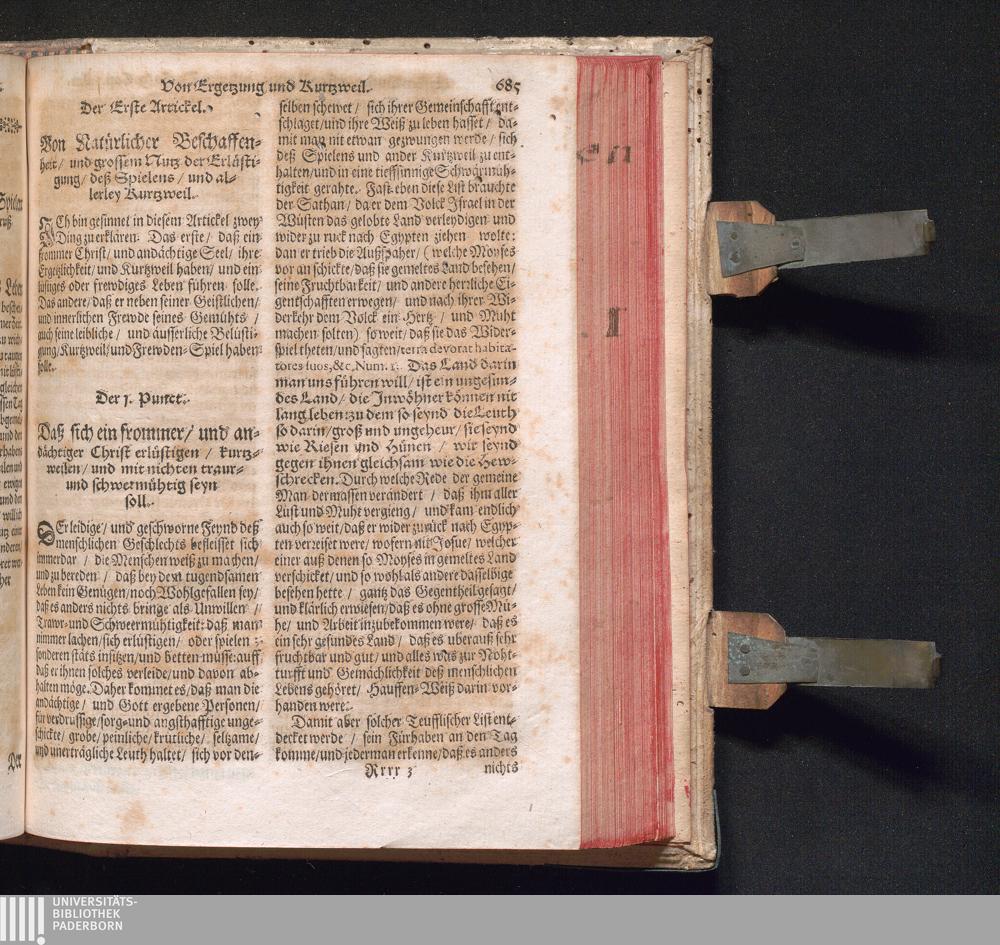 Von Ergetzung und Kurtzweil.
685
Der Erste Artickel.
Von Natürlicher Beschaffen-
heit/ und grossem Nutz der Erlüsti-
gung/ deß Spielens/ und al-
lerley Kurtzweil.
ICh bin gesinnet in diesem Artickel zwey
Ding zu erklären. Das erste/ daß ein
frommer Christ/ und andächtige Seel/ ihre
Ergetzlichkeit/ und Kurtzweil haben/ und ein
lustiges oder frewdiges Leben führen solle.
Das andere/ daß er neben seiner Geistlichen/
und innerlichen Frewde seines Gemühts/
auch seine leibliche/ und äusserliche Belüsti-
gung/ Kurtzweil/ und Frewden-Spiel haben
solle.
Der 1. Punct.
Daß sich ein frommer/ und an-
dächtiger Christ erlüstigen/ kurtz-
weilen/ und mit nichten traur-
und schwermühtig seyn
soll.
DEr leidige/ und geschworne Feynd deß
menschlichen Geschlechts befleisset sich
immerdar/ die Menschen weiß zu machen/
und zu bereden/ daß bey dem tugendsamen
Leben kein Genügen/ noch Wohlgefallen sey/
daß es anders nichts bringe als Unwillen/
Trawr- und Schweermühtigkeit: daß man
nimmer lachen/ sich erlüstigen/ oder spielen:
sonderen stäts insitzen/ und betten müsse: auff
daß er ihnen solches verleide/ und davon ab-
halten möge. Daher kommet es/ daß man die
andächtige/ und Gott ergebene Personen/
für verdrussige/ sorg- und angsthafftige unge-
schickte/ grobe/ peinliche/ krütliche/ seltzame/
und unerträgliche Leuth haltet/ sich vor den-
selben schewet/ sich ihrer Gemeinschafft ent-
schlaget/ und ihre Weiß zu leben hasset/ da-
mit man nit etwan gezwungen werde/ sich
deß Spielens und ander Kurtzweil zu ent-
halten/ und in eine tieffsinnige Schwärmüh-
tigkeit gerahte. Fast eben diese List brauchte
der Sathan/ da er dem Volck Israel in der
Wüsten das gelobte Land verleydigen und
wider zu ruck nach Egypten ziehen wolte:
dan er trieb die Außspäher/ (welche Moyses
vor an schickte/ daß sie gemeltes Land besehen/
seine Fruchtbarkeit/ und andere herrliche Ei-
gentschafften erwegen/ und nach ihrer Wi-
derkehr dem Volck ein Hertz/ und Muht
machen solten) so weit/ daß sie das Wider-
spiel theten/ und sagten/ terra devorat habita-
tores suos, &c. Num. Das Land darin
man uns führen will/ ist ein ungesun-
des Land/ die Inwöhner können nit
lang leben: zu dem so seynd die Leuth
so darin/ groß und ungeheur/ sie seynd
wie Riesen und Hünen/ wir seynd
gegen ihnen gleichsam wie die Hew-
schrecken. Durch welche Rede der gemeine
Man dermassen verändert/ daß ihm aller
Lust und Muht vergieng/ und kam endlich
auch so weit/ daß er wider zurück nach Egyp-
ten verreiset were/ wofern nit Josue/ welcher
einer auß denen so Moyses in gemeltes Land
verschicket/ und so wohl als andere dasselbige
besehen hette/ gantz das Gegentheil gesagt/
und klärlich erwiesen/ daß es ohne grosse Mü-
he/ und Arbeit inzubekommen were/ daß es
ein sehr gesundes Land/ daß es uberauß sehr
fruchtbar und gut/ und alles was zur Noht-
turfft und Gemächlichkeit deß menschlichen
Lebens gehöret/ Hauffen-Weiß darin vor-
handen were.
Damit aber solcher Teufflischer List ent-
decket werde/ sein Fürhaben an den Tag
komme/ und jederman erkenne/ daß es anders
Rrrr 3
nichts
I
UNIVERSITÄTS-
BIBLIOTHEK
PADERBORN